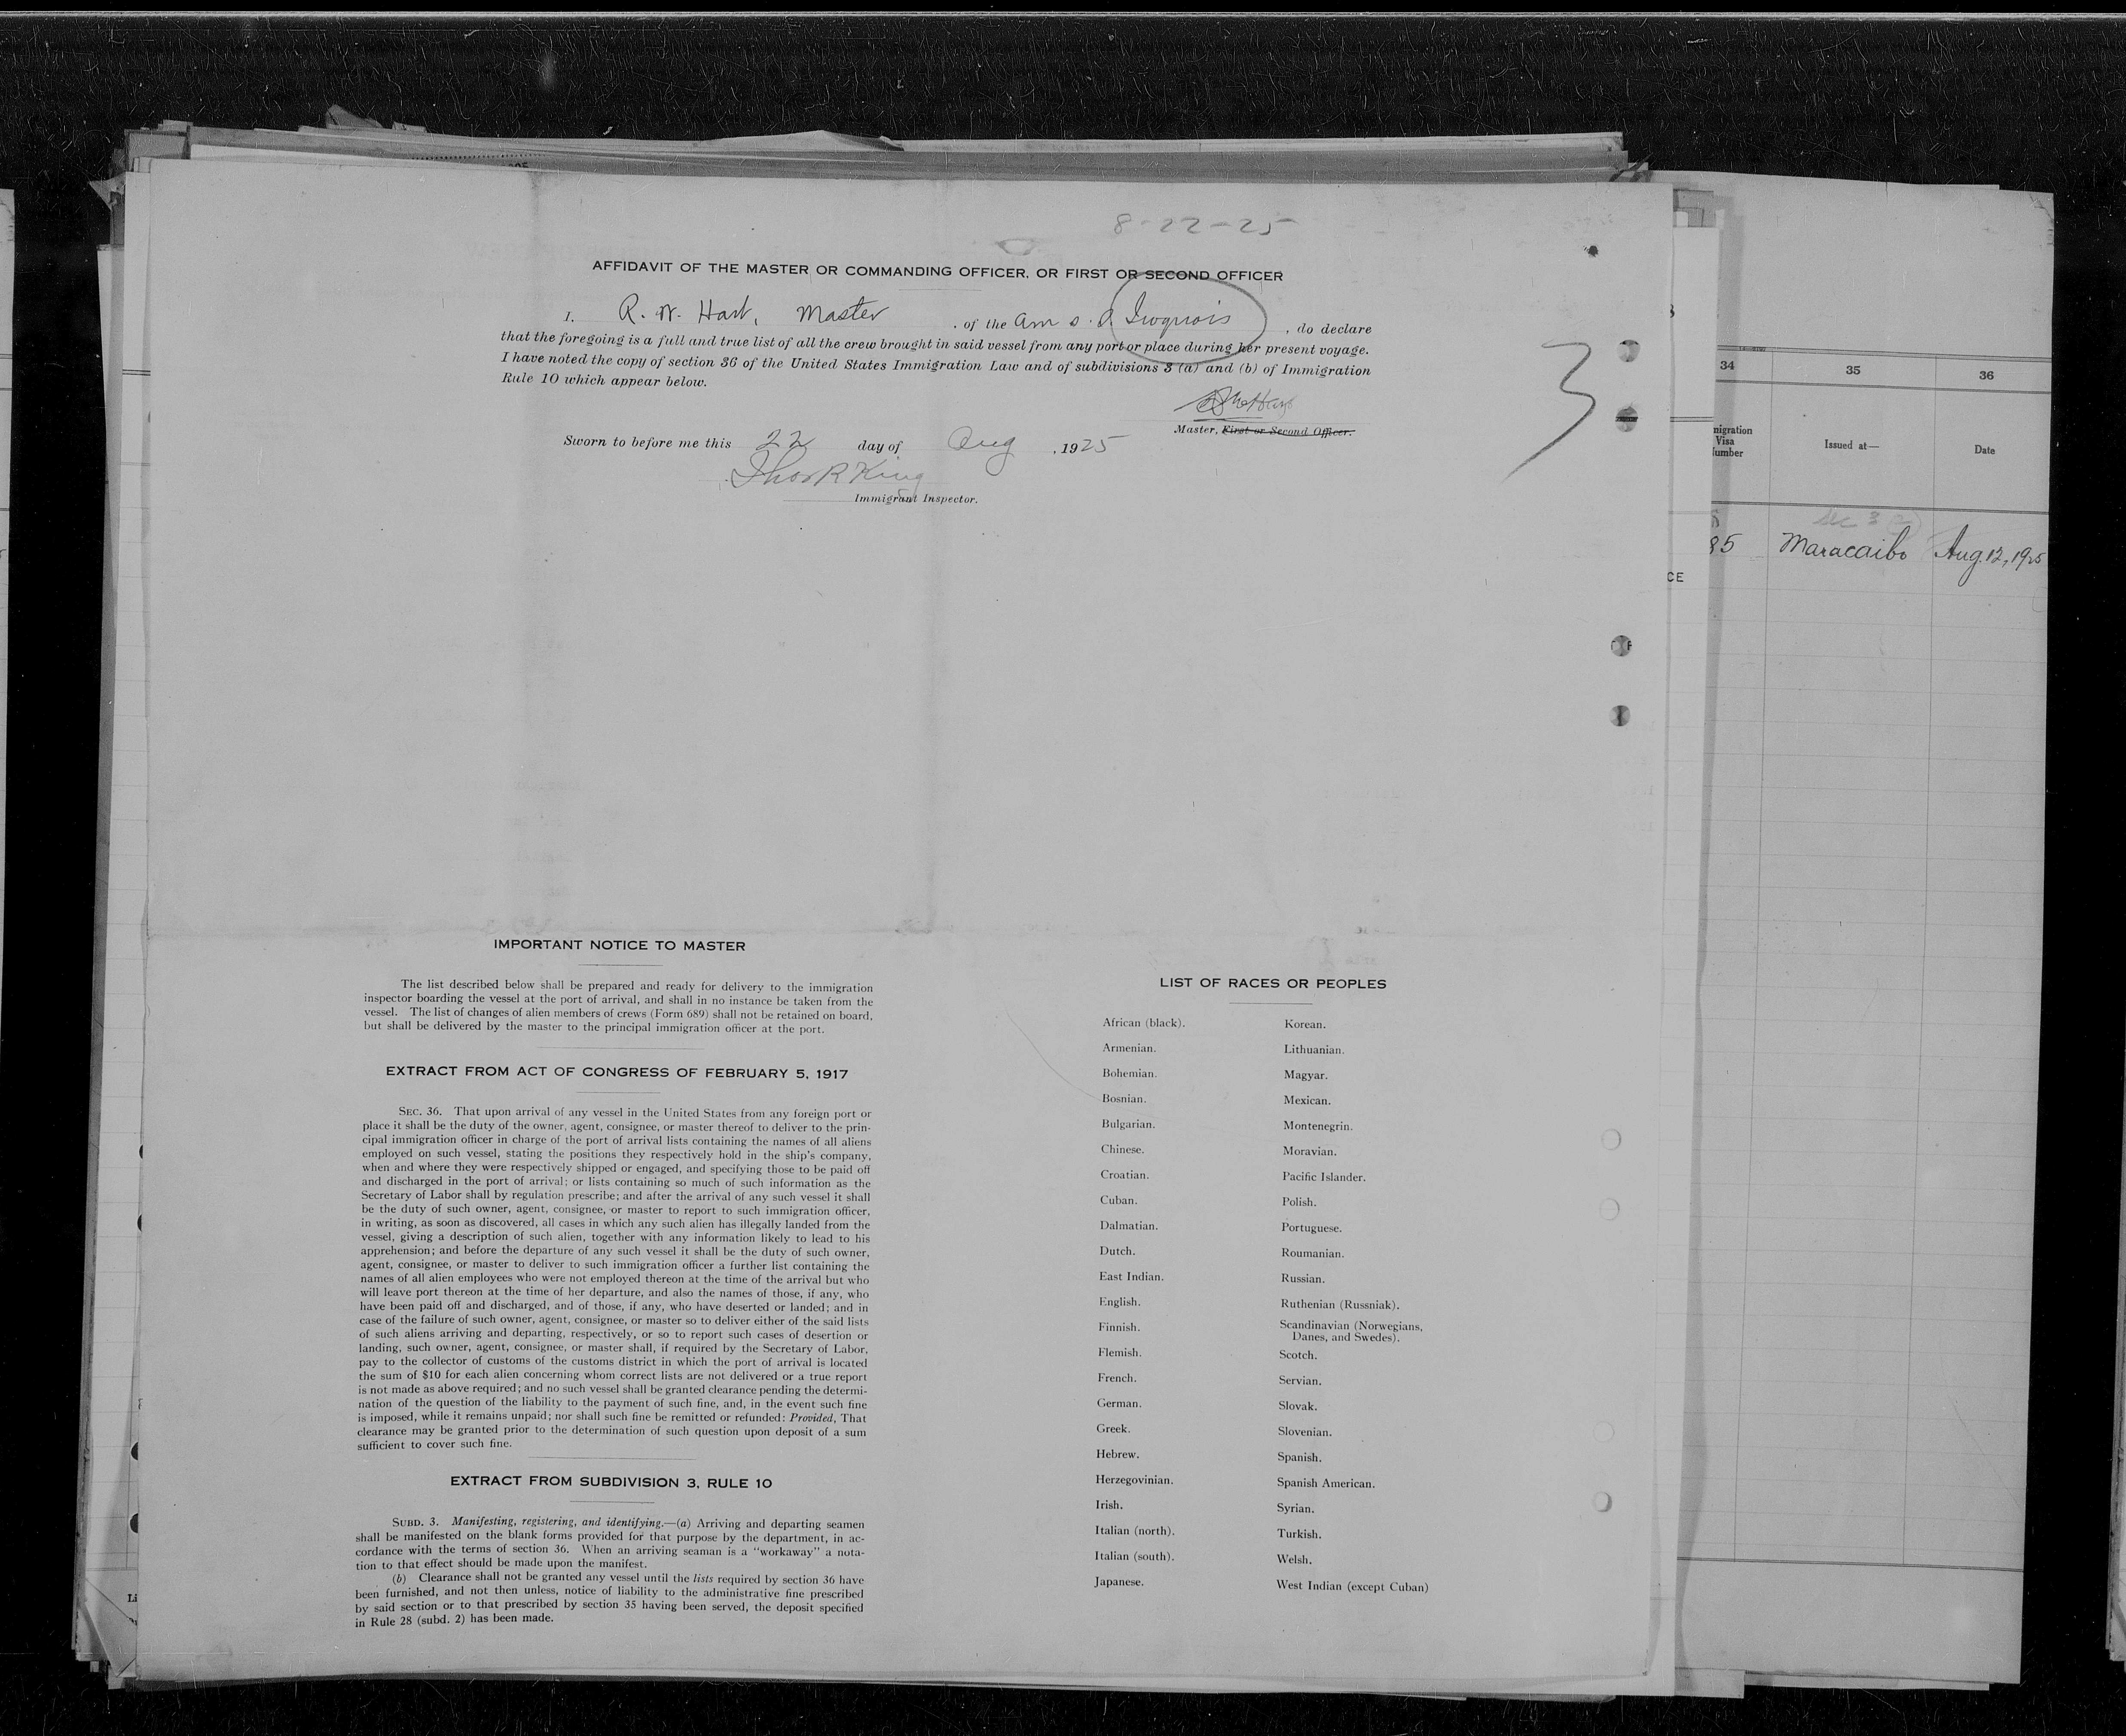 8-22-25
AFFIDAVIT OF THE MASTER OR COMMANDING OFFICER, OR FIRST OR SECOND OFFICER
I, R. W. Hart, Master, of the Am s.s. Iroquois, do declare
that the foregoing is a full and true list of all the crew brought in said vessel from any port or place during her present voyage.
I have noted the copy of section 36 of the United States Immigration Law and of subdivisions 3 (a) and (b) of Immigration
Rule 10 which appear below.
3
RW Hart
Master, First or Second Officer.
Sworn to before me this 22 day of Aug, 1925
Thos R King
Immigrant Inspector.
IMPORTANT NOTICE TO MASTER
The list described below shall be prepared and ready for delivery to the immigration
inspector boarding the vessel at the port of arrival, and shall in no instance be taken from the
vessel. The list of changes of alien members of crews (Form 689) shall not be retained on board,
but shall be delivered by the master to the principal immigration officer at the port.
EXTRACT FROM ACT OF CONGRESS OF FEBRUARY 5, 1917
SEC. 36. That upon arrival of any vessel in the United States from any foreign port or
place it shall be the duty of the owner, agent, consignee, or master thereof to deliver to the prin-
cipal immigration officer in charge of the port of arrival lists containing the names of all aliens
employed on such vessel, stating the positions they respectively hold in the ship's company,
when and where they were respectively shipped or engaged, and specifying those to be paid off
and discharged in the port of arrival; or lists containing so much of such information as the
Secretary of Labor shall by regulation prescribe; and after the arrival of any such vessel it shall
be the duty of such owner, agent, consignee, or master to report to such immigration officer,
in writing, as soon as discovered, all cases in which any such alien has illegally landed from the
vessel, giving a description of such alien, together with any information likely to lead to his
apprehension; and before the departure of any such vessel it shall be the duty of such owner,
agent, consignee, or master to deliver to such immigration officer a further list containing the
names of all alien employees who were not employed thereon at the time of the arrival but who
will leave port thereon at the time of her departure, and also the names of those, if any, who
have been paid off and discharged, and of those, if any, who have deserted or landed; and in
case of the failure of such owner, agent, consignee, or master so to deliver either of the said lists
of such aliens arriving and departing, respectively, or so to report such cases of desertion or
landing, such owner, agent, consignee, or master shall, if required by the Secretary of Labor,
pay to the collector of customs of the customs district in which the port of arrival is located
the sum of $10 for each alien concerning whom correct lists are not delivered or a true report
is not made as above required; and no such vessel shall be granted clearance pending the determi-
nation of the question of the liability to the payment of such fine, and, in the event such fine
is imposed, while it remains unpaid; nor shall such fine be remitted or refunded: Provided, That
clearance may be granted prior to the determination of such question upon deposit of a sum
sufficient to cover such fine.
EXTRACT FROM SUBDIVISION 3, RULE 10
SUBD. 3. Manifesting, registering, and identifying.—(a) Arriving and departing seamen
shall be manifested on the blank forms provided for that purpose by the department, in ac-
cordance with the terms of section 36. When an arriving seaman is a "workaway" a nota-
tion to that effect should be made upon the manifest.
(b) Clearance shall not be granted any vessel until the lists required by section 36 have
been furnished, and not then unless, notice of liability to the administrative fine prescribed
by said section or to that prescribed by section 35 having been served, the deposit specified
in Rule 28 (subd. 2) has been made.
LIST OF RACES OR PEOPLES
African (black).
Armenian.
Bohemian.
Bosnian.
Bulgarian.
Chinese.
Croatian.
Cuban.
Dalmatian.
Dutch.
East Indian.
English.
Finnish.
Flemish.
French.
German.
Greek.
Hebrew.
Herzegovinian.
Irish.
Italian (north).
Italian (south).
Japanese.
Korean.
Lithuanian.
Magyar.
Mexican.
Montenegrin.
Moravian.
Pacific Islander.
Polish.
Portuguese.
Roumanian.
Russian.
Ruthenian (Russniak).
Scandinavian (Norwegians,
Danes, and Swedes).
Scotch.
Servian.
Slovak.
Slovenian.
Spanish.
Spanish American.
Syrian.
Turkish.
Welsh.
West Indian (except Cuban)
34 35 36
Visa
Issued at— Date
Sec 3
85 Maracaibo Aug. 12, 1925
CE
Li